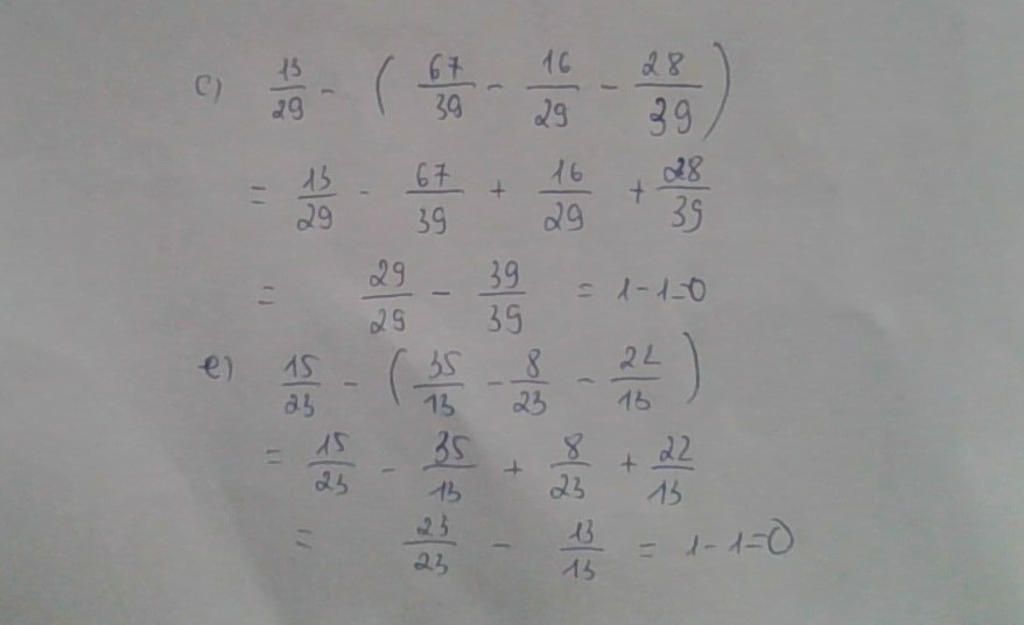 c) 13/29 - ( 67/39 - 16/29 - 28/39 )
= 13/29 - 67/39 + 16/29 + 28/39
= 29/29 - 39/39 = 1-1=0
e) 15/23 - ( 35/13 - 8/23 - 22/13 )
= 15/23 - 35/13 + 8/23 + 22/13
= 23/23 - 13/13 = 1-1=0